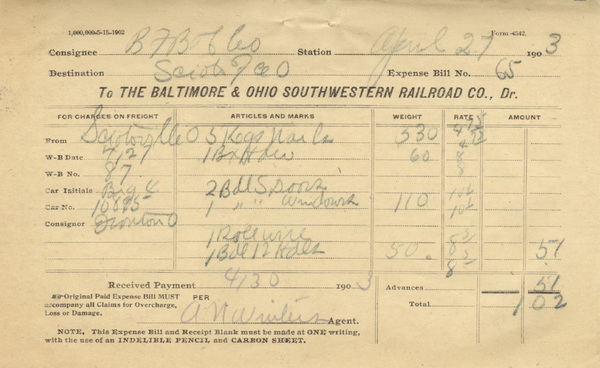 1,000,000-5-15-1902 Form 4542.
Consignee B F Bobles Station April 27 1903
Destination Sciotoville O Expense Bill No. 65
To THE BALTIMORE & OHIO SOUTHWESTERN RAILROAD CO., Dr.
FOR CHARGES ON FREIGHT ARTICLES AND MARKS WEIGHT RATE AMOUNT
From Sciotoville O 5 Kegs Nails 530
W-B Date 4/27 1 Bx Hdw 60
W-B No. 87
Car Initials Big 4 2 Bdls Doors
Car No. 10895 1 " " Windows 110
Consignor Ironton O
1 Roll wire
1 Bdl Hdls 50. 51
Received Payment 4/30 1903 Advances 51
Original Paid Expense Bill MUST PER Total 1 02
accompany all Claims for Overcharge,
Loss or Damage. A N Winters Agent.
NOTE. This Expense Bill and Receipt Blank must be made at ONE writing,
with the use of an INDELIBLE PENCIL and CARBON SHEET.